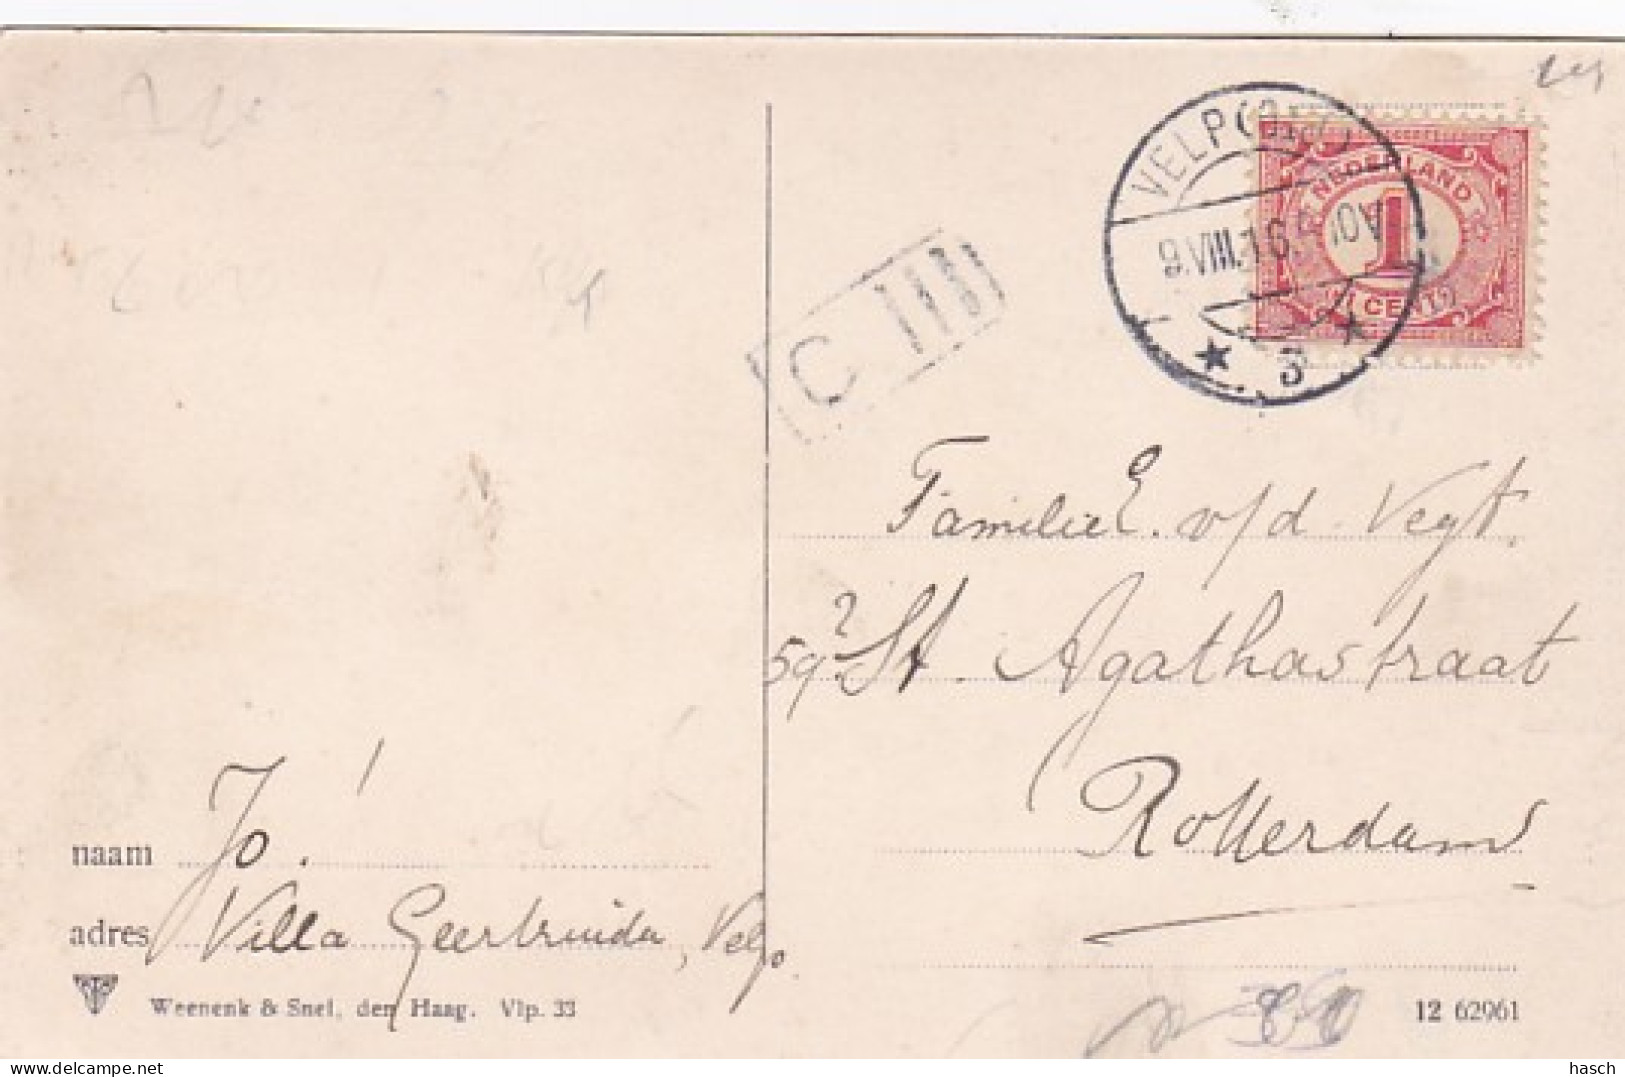 VELP (
NEDERLAND
1
(1 CENT)
9.VIII.1 6 10V
★ 3 ★
C III
Familie E. v/d. Vegt.
59 St. Agathastraat
Rotterdam
naam Jo.
adres Villa Geertruida, Velp.
Weenenk & Snel, den Haag. Vlp. 33
12 62961
hasch
delcampe.net